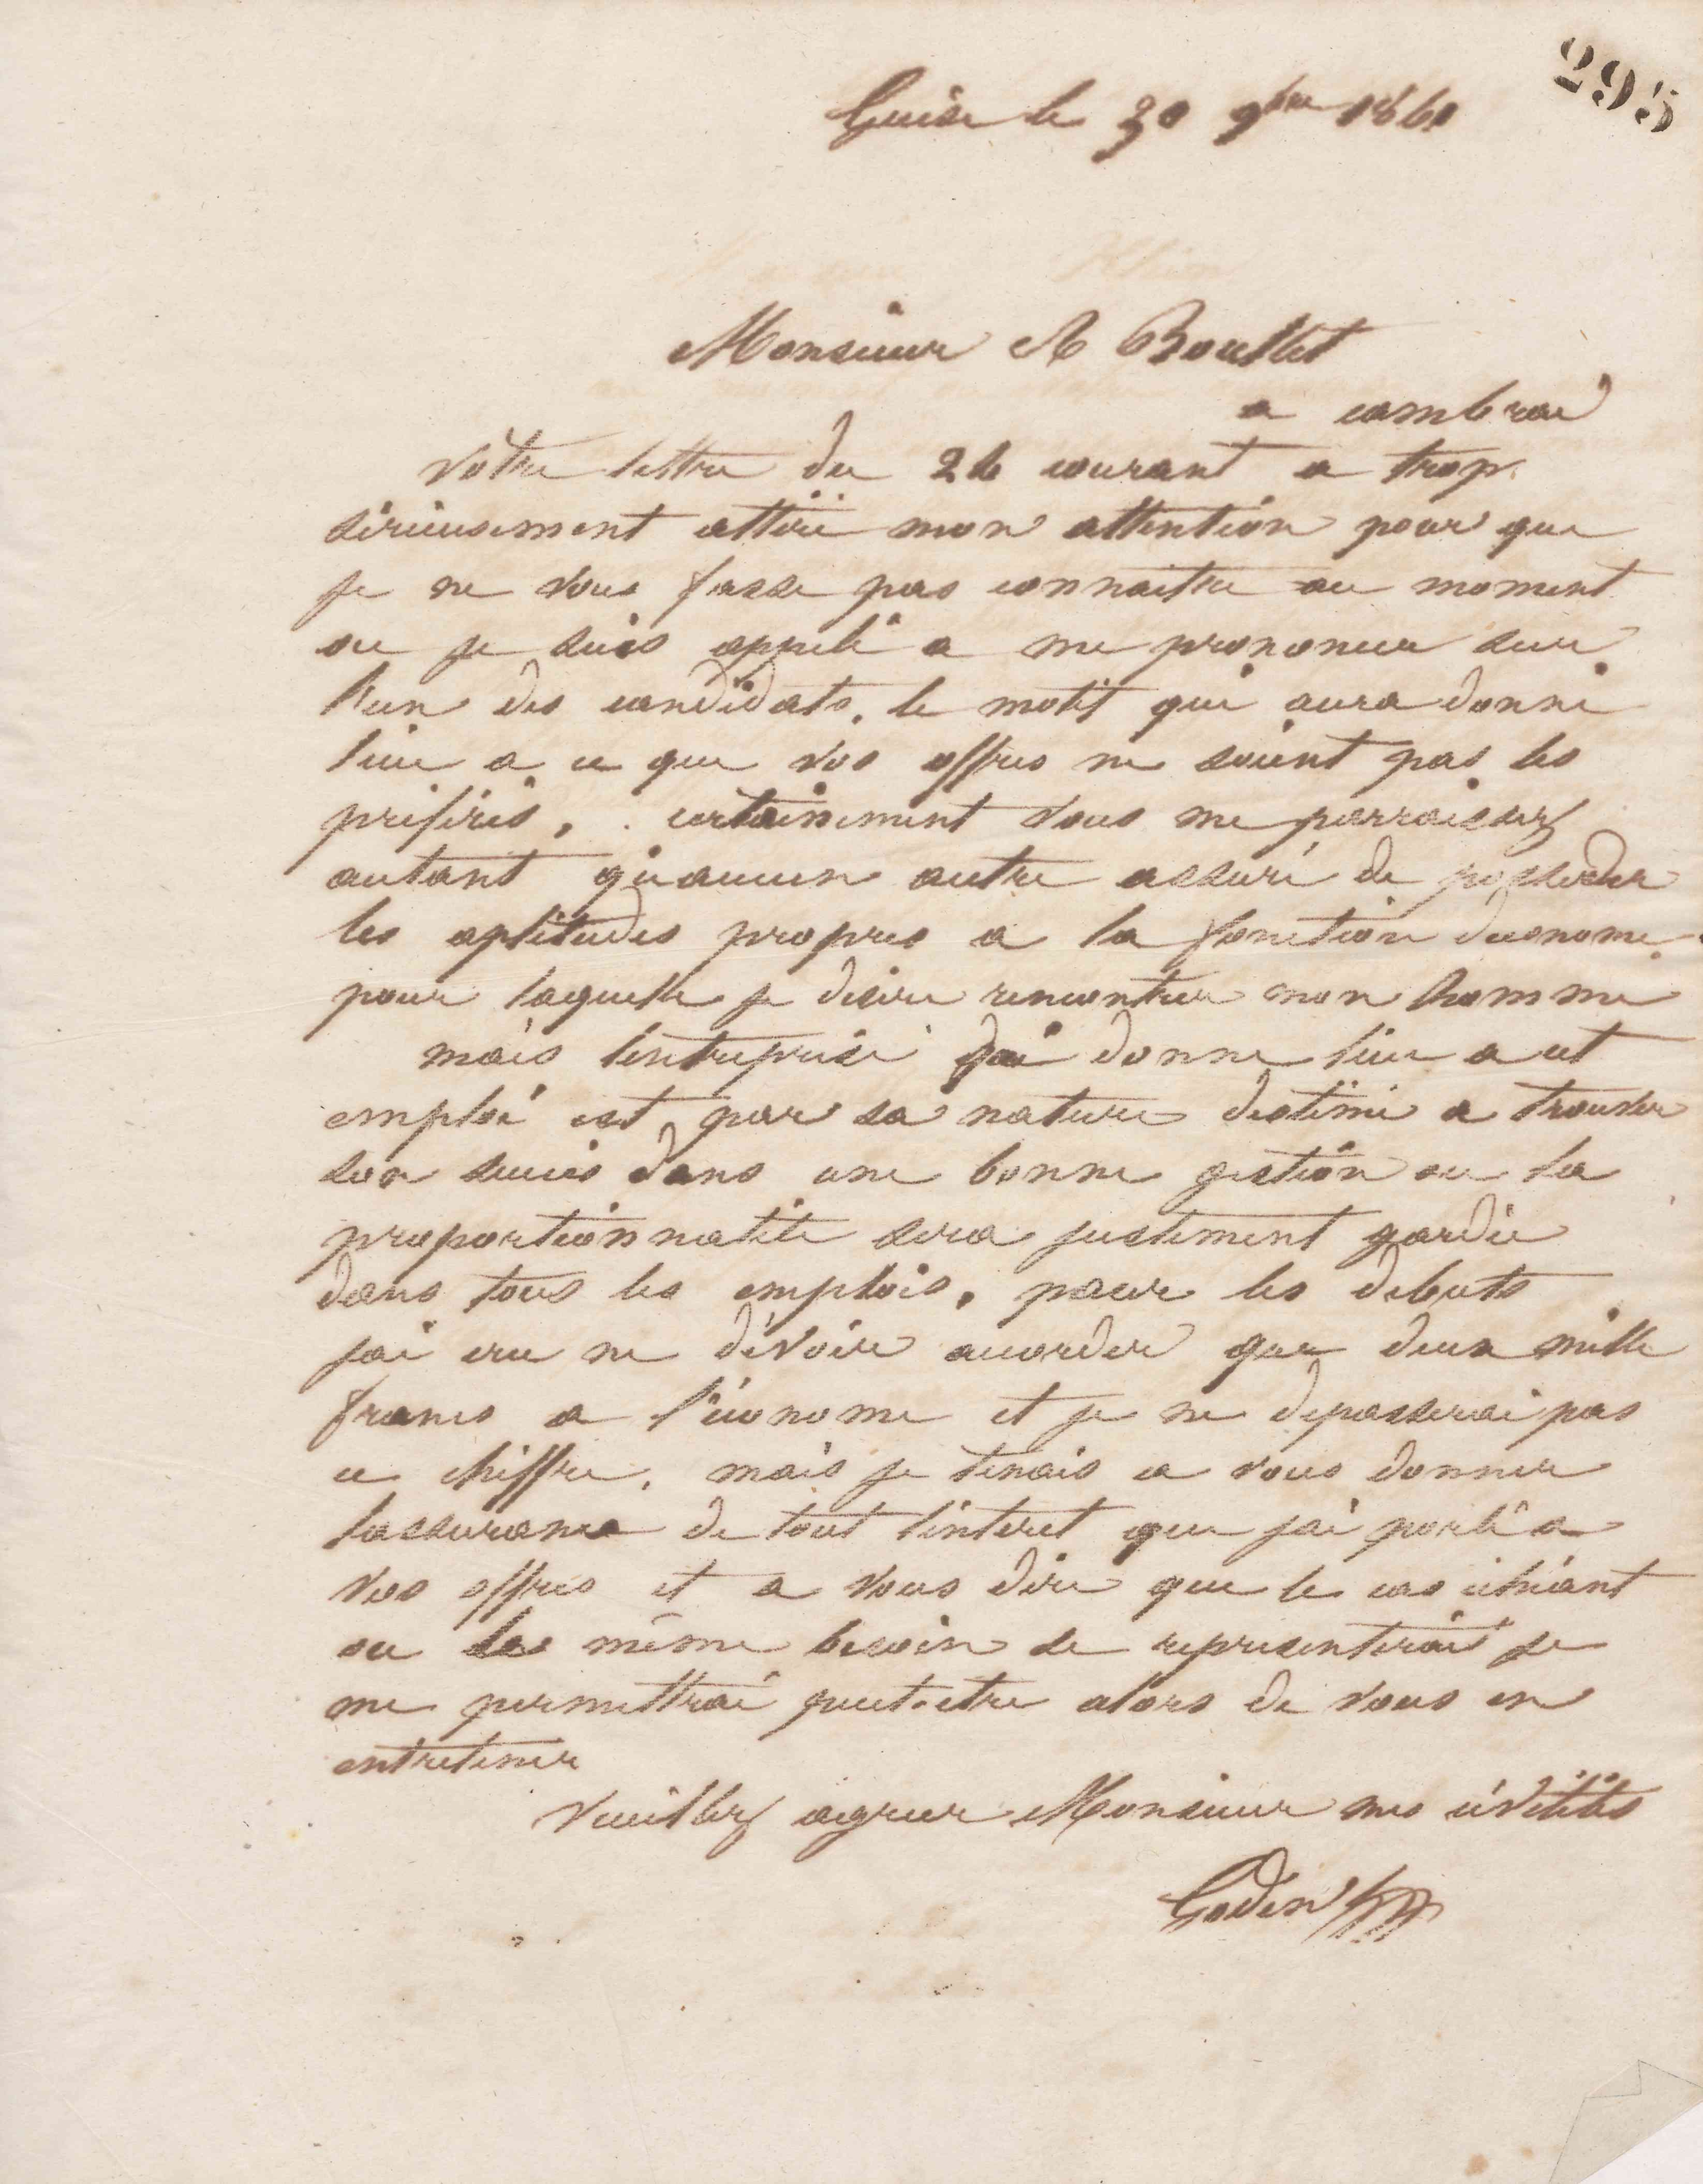 295
Guise le 30 9bre 1860
Monsieur A Boullet
a cambrai
Votre lettre du 26 courant a trop
sérieusement attiré mon attention pour que
je ne vous fasse pas connaitre au moment
ou je suis appelé a me prononcer sur
l'un des candidats. le motif qui aura donné
lieu a ce que vos offres ne soient pas les
préférés. certainement vous me parraissez
autant qu'aucun autre assuré de posseder
les aptitudes propres a la fonction deconome
pour laquelle je désire rencontrer mon homme
mais lentreprise qui donne lieu a cet
emploi est par sa nature destiné a trouver
son succés dans une bonne gestion ou la
proportionnalité sera justement gardée
dans tous les emplois. pour les debuts
jai cru ne dévoir accorder que deux mille
francs a l'économe et je ne depasserai pas
ce chiffre. mais je tenais a vous donner
lassurance de tout lintéret que jai porté a
vos offres et a vous dire que le cas échéant
ou le même besoin se representerait je
me permettrai peut-etre alors de vous en
entretenir
Veuillez agréer Monsieur mes civilités
Godin